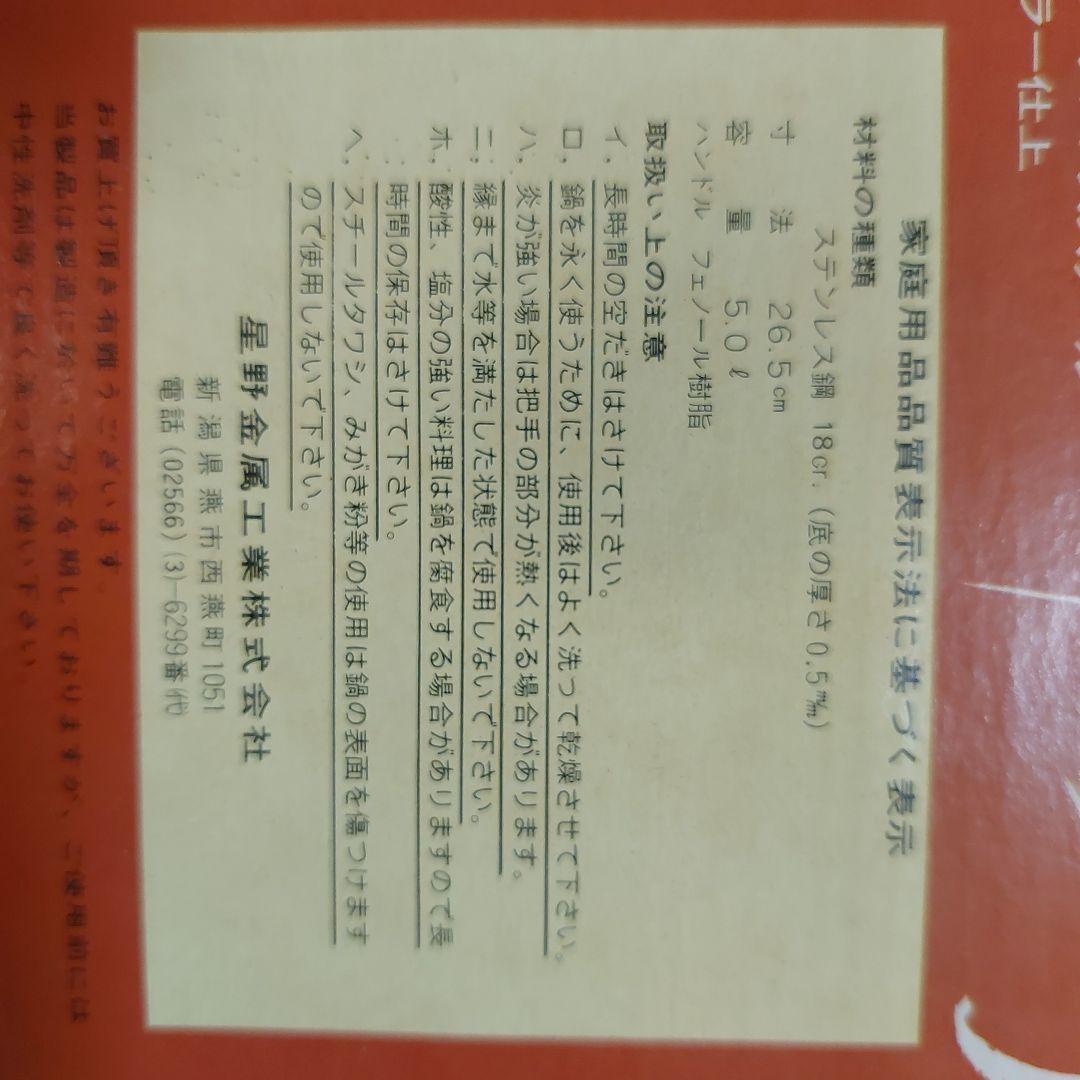 ラー仕上
家庭用品品質表示法に基づく表示
材料の種類
ステンレス鋼 18cr. (底の厚さ0.5㎜)
寸 法 26.5cm
容 量 5.0ℓ
ハンドル フェノール樹脂
取扱い上の注意
イ. 長時間の空だきはさけて下さい。
ロ. 鍋を永く使うために、使用後はよく洗って乾燥させて下さい。
ハ. 炎が強い場合は把手の部分が熱くなる場合があります。
ニ. 縁まで水等を満たした状態で使用しないで下さい。
ホ. 酸性、塩分の強い料理は鍋を腐食する場合がありますので長
時間の保存はさけて下さい。
ヘ. スチールタワシ、みがき粉等の使用は鍋の表面を傷つけます
ので使用しないで下さい。
星野金属工業株式会社
新潟県燕市西燕町1051
電話(02566)(3)-6299番代
お買上げ頂き有難うございます。
当製品は製造において万全を期しておりますが、ご使用前には
中性洗剤等で良く洗ってお使い下さい。